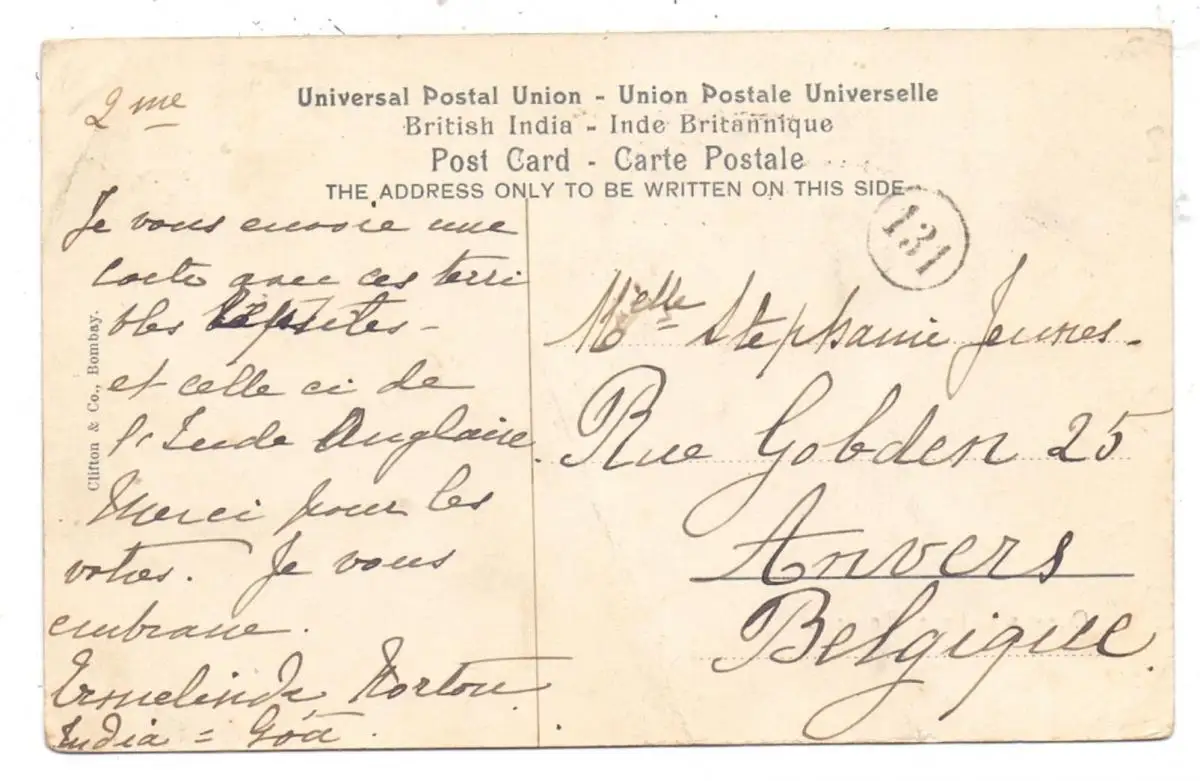 2me
Universal Postal Union - Union Postale Universelle
British India - Inde Britannique
Post Card - Carte Postale
THE ADDRESS ONLY TO BE WRITTEN ON THIS SIDE
131
Je vous envoie une
carte avec ces terri
bles
et celle ci de
l'Inde Anglaise.
Merci pour les
votres. Je vous
embrasse.
Ermelinda Norton
India = Goa.
Clifton & Co., Bombay.
Melle Stephanie
Rue Gobden 25
Anvers
Belgique.